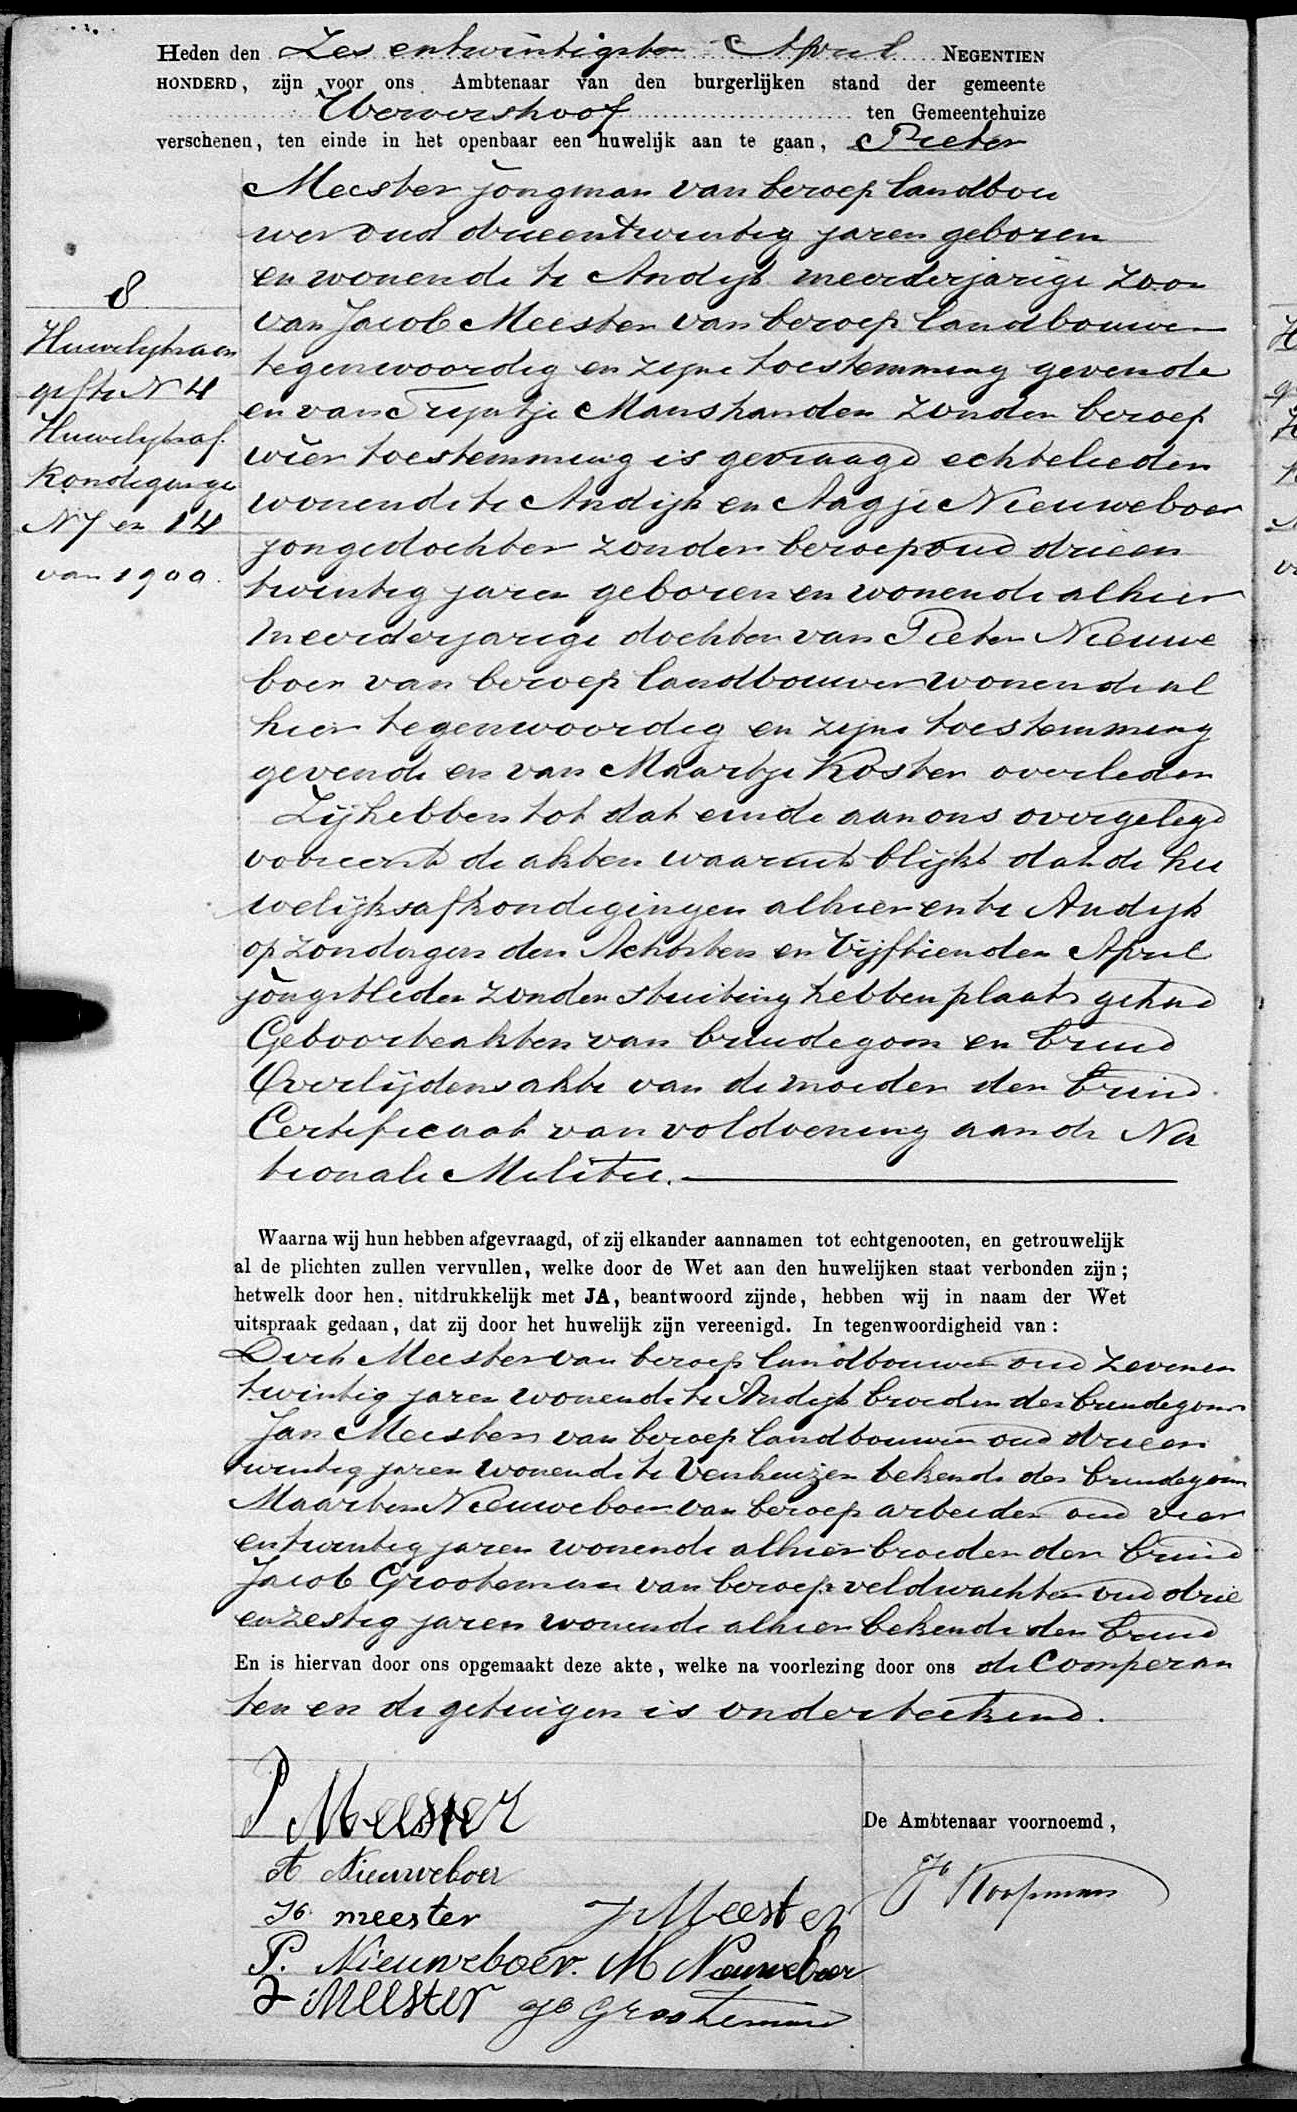 Heden den Zes entwintigsten April NEGENTIEN
HONDERD, zijn voor ons Ambtenaar van den burgerlijken stand der gemeente
Wervershoof ten Gemeentehuize
verschenen, ten einde in het openbaar een huwelijk aan te gaan, Pieter
Meester jongman van beroep landbou
wer oud drieentwintig jaren geboren
en wonende te Andijk meerderjarige zoon
van Jacob Meester van beroep landbouwer
tegenwoordig en zijne toestemming gevende
en van Trijntje Manshanden zonder beroep
wier toestemming is gevraagd echtelieden
wonende te Andijk en Aagje Nieuweboer
jongedochter zonder beroep oud drieen
twintig jaren geboren en wonende alhier
meerderjarige dochter van Pieter Nieuwe
boer van beroep landbouwer wonende al
hier tegenwoordig en zijne toestemming
gevende en van Maartje Koster overleden
Zij hebben tot dat einde aan ons overgelegd
vooreerst de akten waaruit blijkt dat de hu
welijksafkondigingen alhier en te Andijk
op zondagen den Achtsten en Vijftienden April
jongstleden zonder stuiting hebben plaats gehad
Geboorteakten van bruidegom en bruid
Overlijdensakte van de moeder der bruid.
Certificaat van voldoening aan de Na
tionale Militie.
8
Huwelijksaan
gifte N 4
Huwelijksaf
kondiginge
N 7 en 14
van 1900.
Waarna wij hun hebben afgevraagd, of zij elkander aannamen tot echtgenooten, en getrouwelijk
al de plichten zullen vervullen, welke door de Wet aan den huwelijken staat verbonden zijn;
hetwelk door hen, uitdrukkelijk met JA, beantwoord zijnde, hebben wij in naam der Wet
uitspraak gedaan, dat zij door het huwelijk zijn vereenigd. In tegenwoordigheid van:
Dirk Meester van beroep landbouwer oud zevenen
twintig jaren wonende te Andijk broeder des bruidegoms
Jan Meester van beroep landbouwer oud drieen
twintig jaren wonende te Venhuizen bekende des bruidegoms
Maarten Nieuweboer van beroep arbeider oud vier
entwintig jaren wonende alhier broeder der bruid
Jacob Grooteman van beroep veldwachter oud drie
enzestig jaren wonende alhier bekende der bruid
En is hiervan door ons opgemaakt deze akte, welke na voorlezing door ons de Comparan
ten en de getuigen is onderteekend.
P Meester
De Ambtenaar voornoemd,
A Nieuweboer
Jb Koopman
Jb. meester J Meester
P. Nieuweboer. M Nieuweboer
D Meester Jb Grooteman